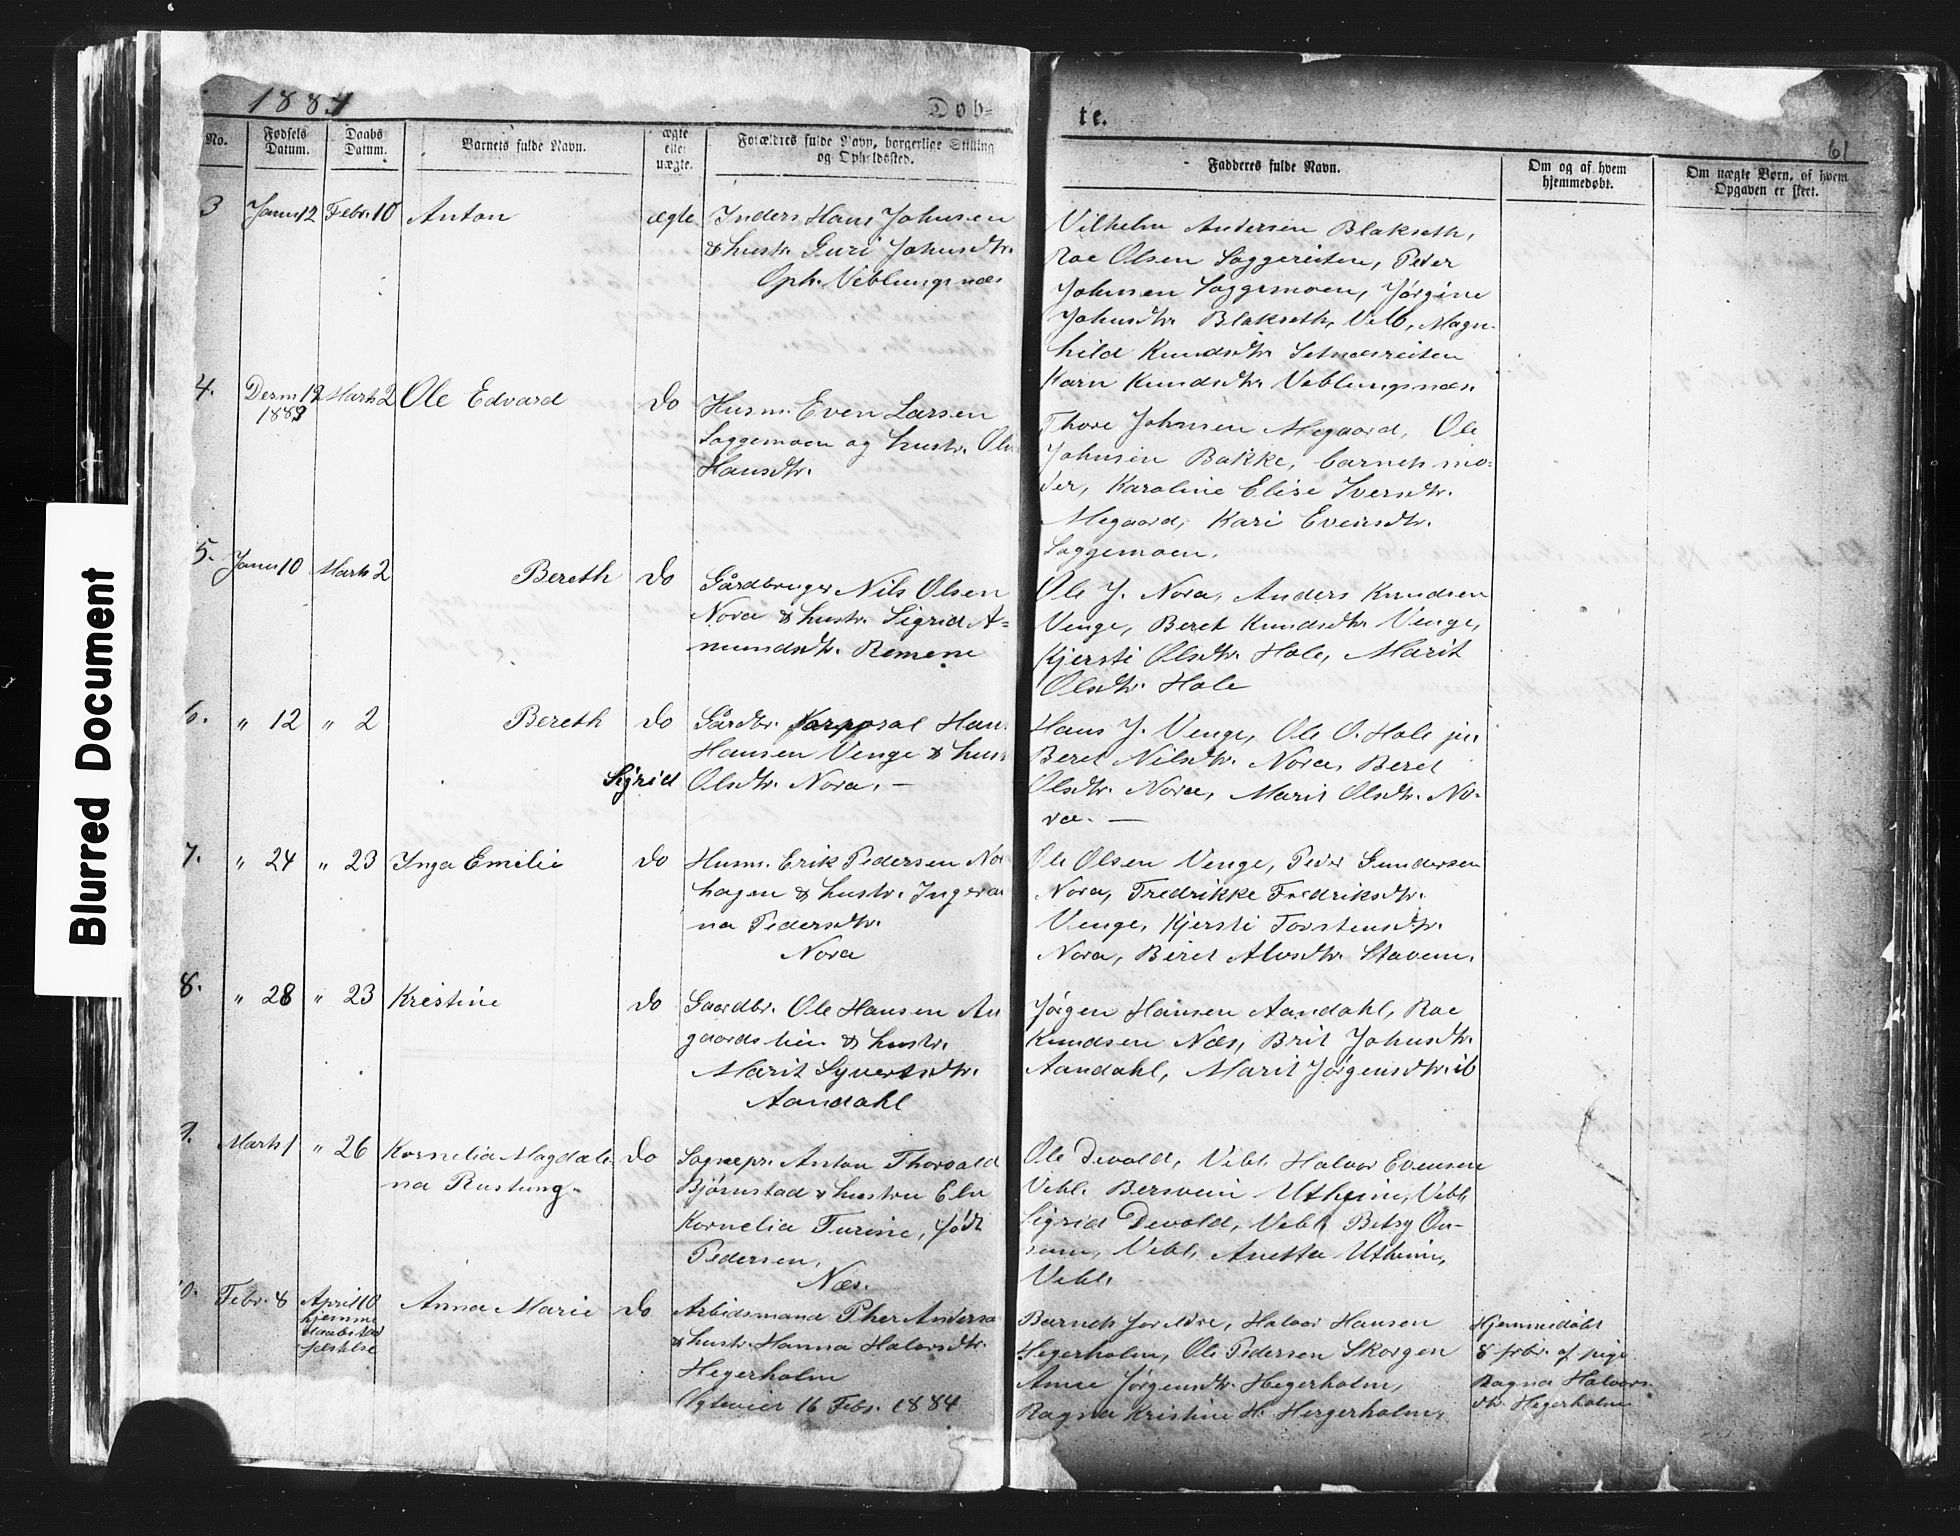 Blurred Document
1884
Døb-
te.
61
No.
Fødsels Datum.
Daabs Datum.
Barnets fulde Navn.
ægte eller uægte.
Forældres fulde Navn, borgerlige Stilling og Opholdssted.
Fadderes fulde Navn.
Om og af hvem hjemmedøbt.
Om uægte Børn, af hvem Opgaven er skeet.
3 Janu 12 Febr. 10 Anton ægte Inders Hans Johnsen
& hustr. Guri Johnsdtr.
Oph. Veblungsnæs
Vilhelm Andersen Blakseth,
Roe Olsen Soggereiten, Peder
Johnsen Soggemoen, Jørgine
Johnsdtr. Blakseth, Veb, Magn-
hild Knudsdtr. Setnesreiten
Karn Knudsdtr. Veblungsnæs.
4. 19 1883 Marts 2 Ole Edvard do Husm. Even Larsen
Soggemoen og hustr.
Hansdtr.
Thore Johnsen Megaard, Ole
Johnsen Bakke, barnets mo-
der, Karoline Elise Iversdtr.
Megaard, Kari Evensdtr.
Soggemoen.
5. Janu 10 Marts 2 Bereth do Gårdbruger Nils Olsen
Nora & hustr. Sigrid A-
mundsdtr. Remem
Ole J. Nora, Anders Knudsen
Venge, Beret Knudsdtr. Venge,
Kjersti Olsdtr. Hole, Marit
Olsdtr. Hole
6. " 12 " 2 Bereth do Gårdbr. Han
Hansen Venge & hus
Sigrid Olsdtr. Nora. —
Hans J. Venge, Ole O. Hole jun
Beret Nilsdtr. Nora, Beret
Olsdtr. Nora, Marit Olsdtr. No-
ra. —
7. " 24 " 23 Inga Emilie do Husm. Erik Pedersen No
hagen & hustr. Ingeria
na Pedersdtr.
Nora
Ole Olsen Venge, Peder Gundersen
Nora, Fredrikke Fredriksdtr.
Venge, Kjersti Torstensdtr.
Nora, Beret Alvsdtr. Stavem.
8. " 28 " 23 Kristine do Gaardbr. Ole Hansen An
gaardslien & hustr.
Marit Syvertsdtr.
Aandahl
Jørgen Hansen Aandahl, Roe
Knudsen Næs, Brit Johnsdtr.
Aandahl, Marit Jørgensdtr. ib
9. Marts 1 " 26 Kornelia Magdale-
na Rustung- do Sognepr. Anton Thorvald
Bjørnstad & hustru Elu
Kornelia Turine, født
Pedersen,
Næs.
Ole Devold, Vebl. Halvor Evensen
Vebl. Bersvein Utheim, Vebl
Sigrid Devold, Vebl. Betsy On-
sum, Vebl. Anetta Utheim,
Vebl.
10. Febr. 8 April 10
hjemme
daabstad
festelse
Anna Marie do Arbidsmand Ped Anders
& hustr. Hanna Halvorsdtr.
Hegerholm
Ægteviet 16 Febr. 1884
Barnets foreldre, Halvor Hansen
Hegerholm, Ole Pedersen Skorgen
Anne Jørgensdtr. Hegerholm,
Ragna Kristine H. Hergerholm,
Hjemmedøbt
8 febr. af pige
Ragna Halvors
dtr. Hegerholm